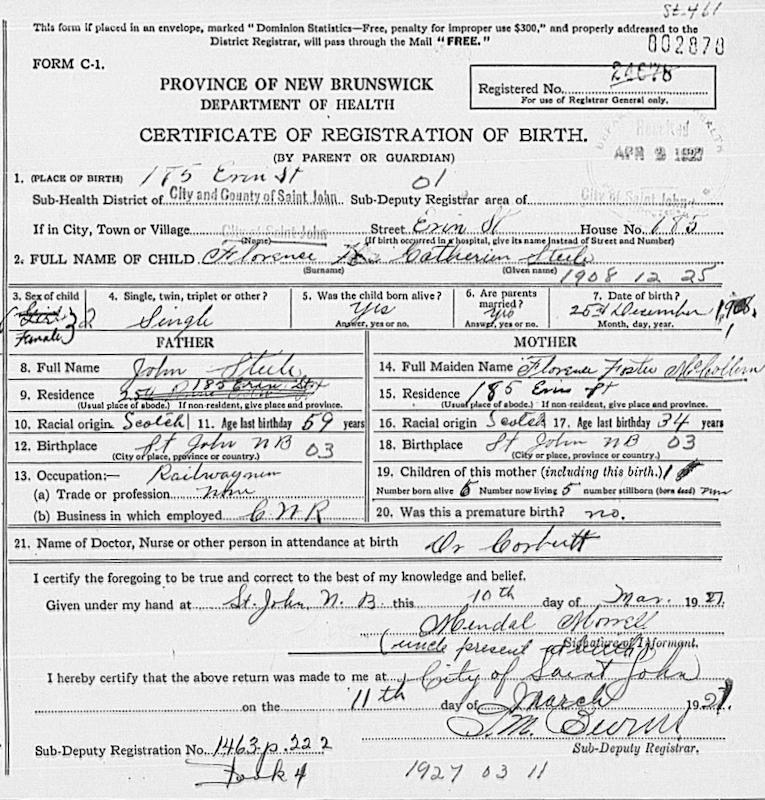 St. 461
This form if placed in an envelope, marked "Dominion Statistics—Free, penalty for improper use $300," and properly addressed to the
District Registrar, will pass through the Mail "FREE."
002870
FORM C-1.
PROVINCE OF NEW BRUNSWICK
DEPARTMENT OF HEALTH
Registered No.
For use of Registrar General only.
CERTIFICATE OF REGISTRATION OF BIRTH.
(BY PARENT OR GUARDIAN)
Received
APR 9 1927
1. (PLACE OF BIRTH) 185 Erin St
01
Sub-Health District of City and County of Saint John Sub-Deputy Registrar area of City of Saint John
If in City, Town or Village City of Saint John Street Erin St House No. 185
(Name) (If birth occurred in a hospital, give its name instead of Street and Number)
2. FULL NAME OF CHILD Florence Catherien Steele
(Surname) (Given name)
1908 12 25
3. Sex of child 4. Single, twin, triplet or other? 5. Was the child born alive? 6. Are parents married? 7. Date of birth?
Girl Female 32 Single Yes Yes 25th December 1908
Answer, yes or no. Answer, yes or no. Month, day, year.
FATHER MOTHER
8. Full Name John Steele
14. Full Maiden Name Florence Foster McCollum
9. Residence 185 Erin St
15. Residence 185 Erin St
(Usual place of abode.) If non-resident, give place and province.
(Usual place of abode.) If non-resident, give place and province.
10. Racial origin Scotch 11. Age last birthday 59 years
16. Racial origin Scotch 17. Age last birthday 34 years
12. Birthplace St John NB 03
18. Birthplace St John NB 03
(City or place, province or country.)
(City or place, province or country.)
13. Occupation:— Railwaymen
19. Children of this mother (including this birth.)
(a) Trade or profession none
Number born alive 6 Number now living 5 number stillborn (born dead) none
(b) Business in which employed C N R
20. Was this a premature birth? no.
21. Name of Doctor, Nurse or other person in attendance at birth Dr Corbett
I certify the foregoing to be true and correct to the best of my knowledge and belief.
Given under my hand at St. John, N. B. this 10th day of Mar. 1927.
Mendal Morrell
Signature of Informant.
(uncle present at birth)
I hereby certify that the above return was made to me at City of Saint John
on the 11th day of March 1927
Sub-Deputy Registrar.
Sub-Deputy Registration No. 1463-p. 222
Book 4
1927 03 11